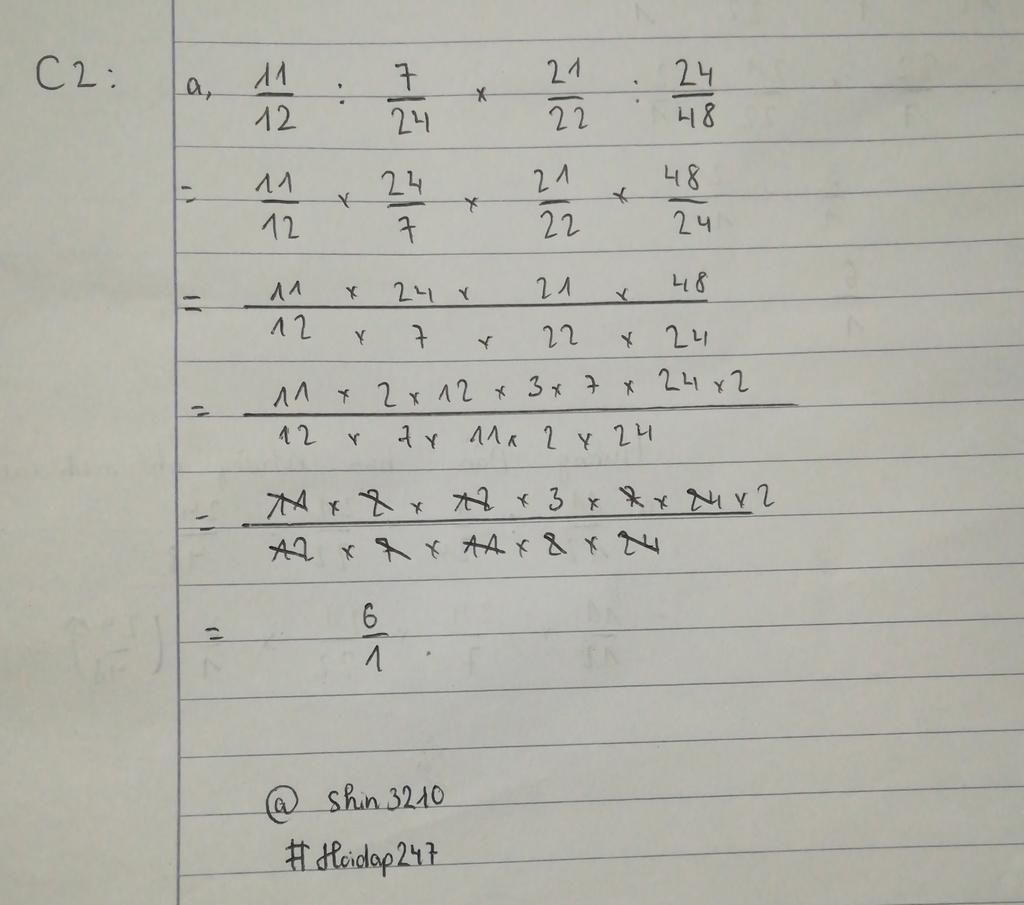 C2: a, 11/12 : 7/24 × 21/22 : 24/48
= 11/12 × 24/7 × 21/22 × 48/24
= 11 × 24 × 21 × 48 / 12 × 7 × 22 × 24
= 11 × 2 × 12 × 3 × 7 × 24 × 2 / 12 × 7 × 11 × 2 × 24
= 11 × 2 × 12 × 3 × 7 × 24 × 2 / 12 × 7 × 11 × 2 × 24
= 6/1 .
@ shin3210
#Hoidap247